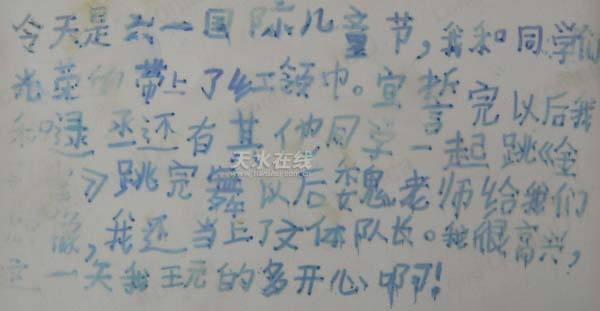 今天是六一国际儿童节，我和同学们
光荣的带上了红领巾。宣誓完以后我
和 丞还有其他同学一起跳《金
》跳完舞以后魏老师给我们
，我还当上了文体队长。我很高兴，
一天我玩的多开心啊！
天水在线